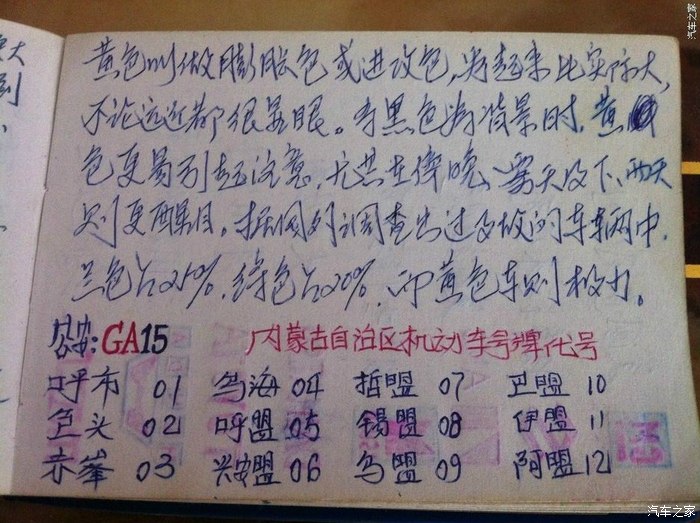 黄色叫做膨胀色或进攻色,看起来比实际大,
不论远近都很显眼。有黑色为背景时,黄
色更易引起注意,尤其在傍晚、雾天及下雨天
则更醒目。据国外调查出过事故的车辆中,
兰色占25%,绿色占20%,而黄色车则极少。
公安:GA15 内蒙古自治区机动车号牌代号
呼市 01 乌海 04 哲盟 07 巴盟 10
包头 02 呼盟 05 锡盟 08 伊盟 11
赤峯 03 兴安盟 06 乌盟 09 阿盟 12
汽车之家
汽车之家